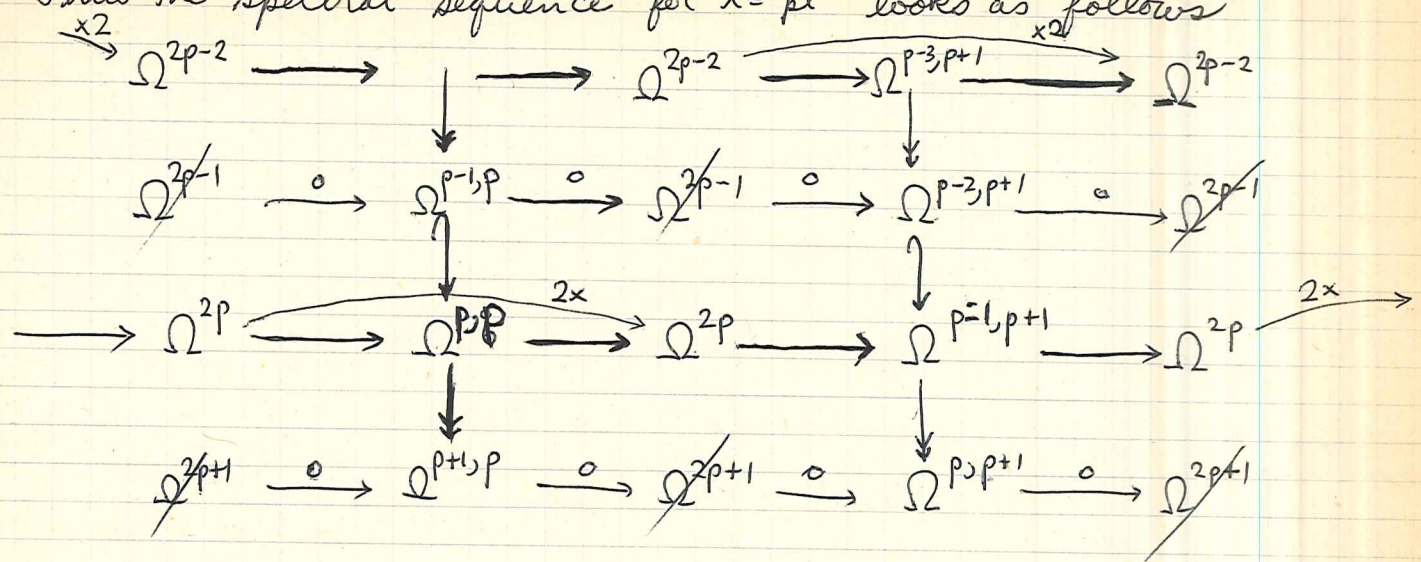 the spectral sequence for X = pt looks as follows
×2 Ω^{2p-2} → → Ω^{2p-2} → ×2 Ω^{p-3,p+1} → Ω^{2p-2}
Ω^{2p-1} 0 → Ω^{p-1,p} 0 → Ω^{2p-1} 0 → Ω^{p-2,p+1} 0 → Ω^{2p-1}
→ Ω^{2p} → 2x Ω^{p,p} → Ω^{2p} → Ω^{p-1,p+1} → Ω^{2p} 2x
Ω^{2p+1} 0 → Ω^{p+1,p} 0 → Ω^{2p+1} 0 → Ω^{p,p+1} 0 → Ω^{2p+1}